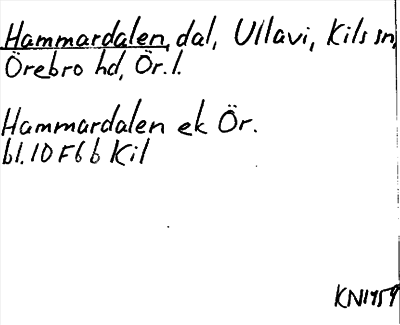 Hammardalen, dal, Ullavi, Kils sn,
Örebro hd, Ör.l.
Hammardalen ek Ör.
bl.10 F6 b Kil